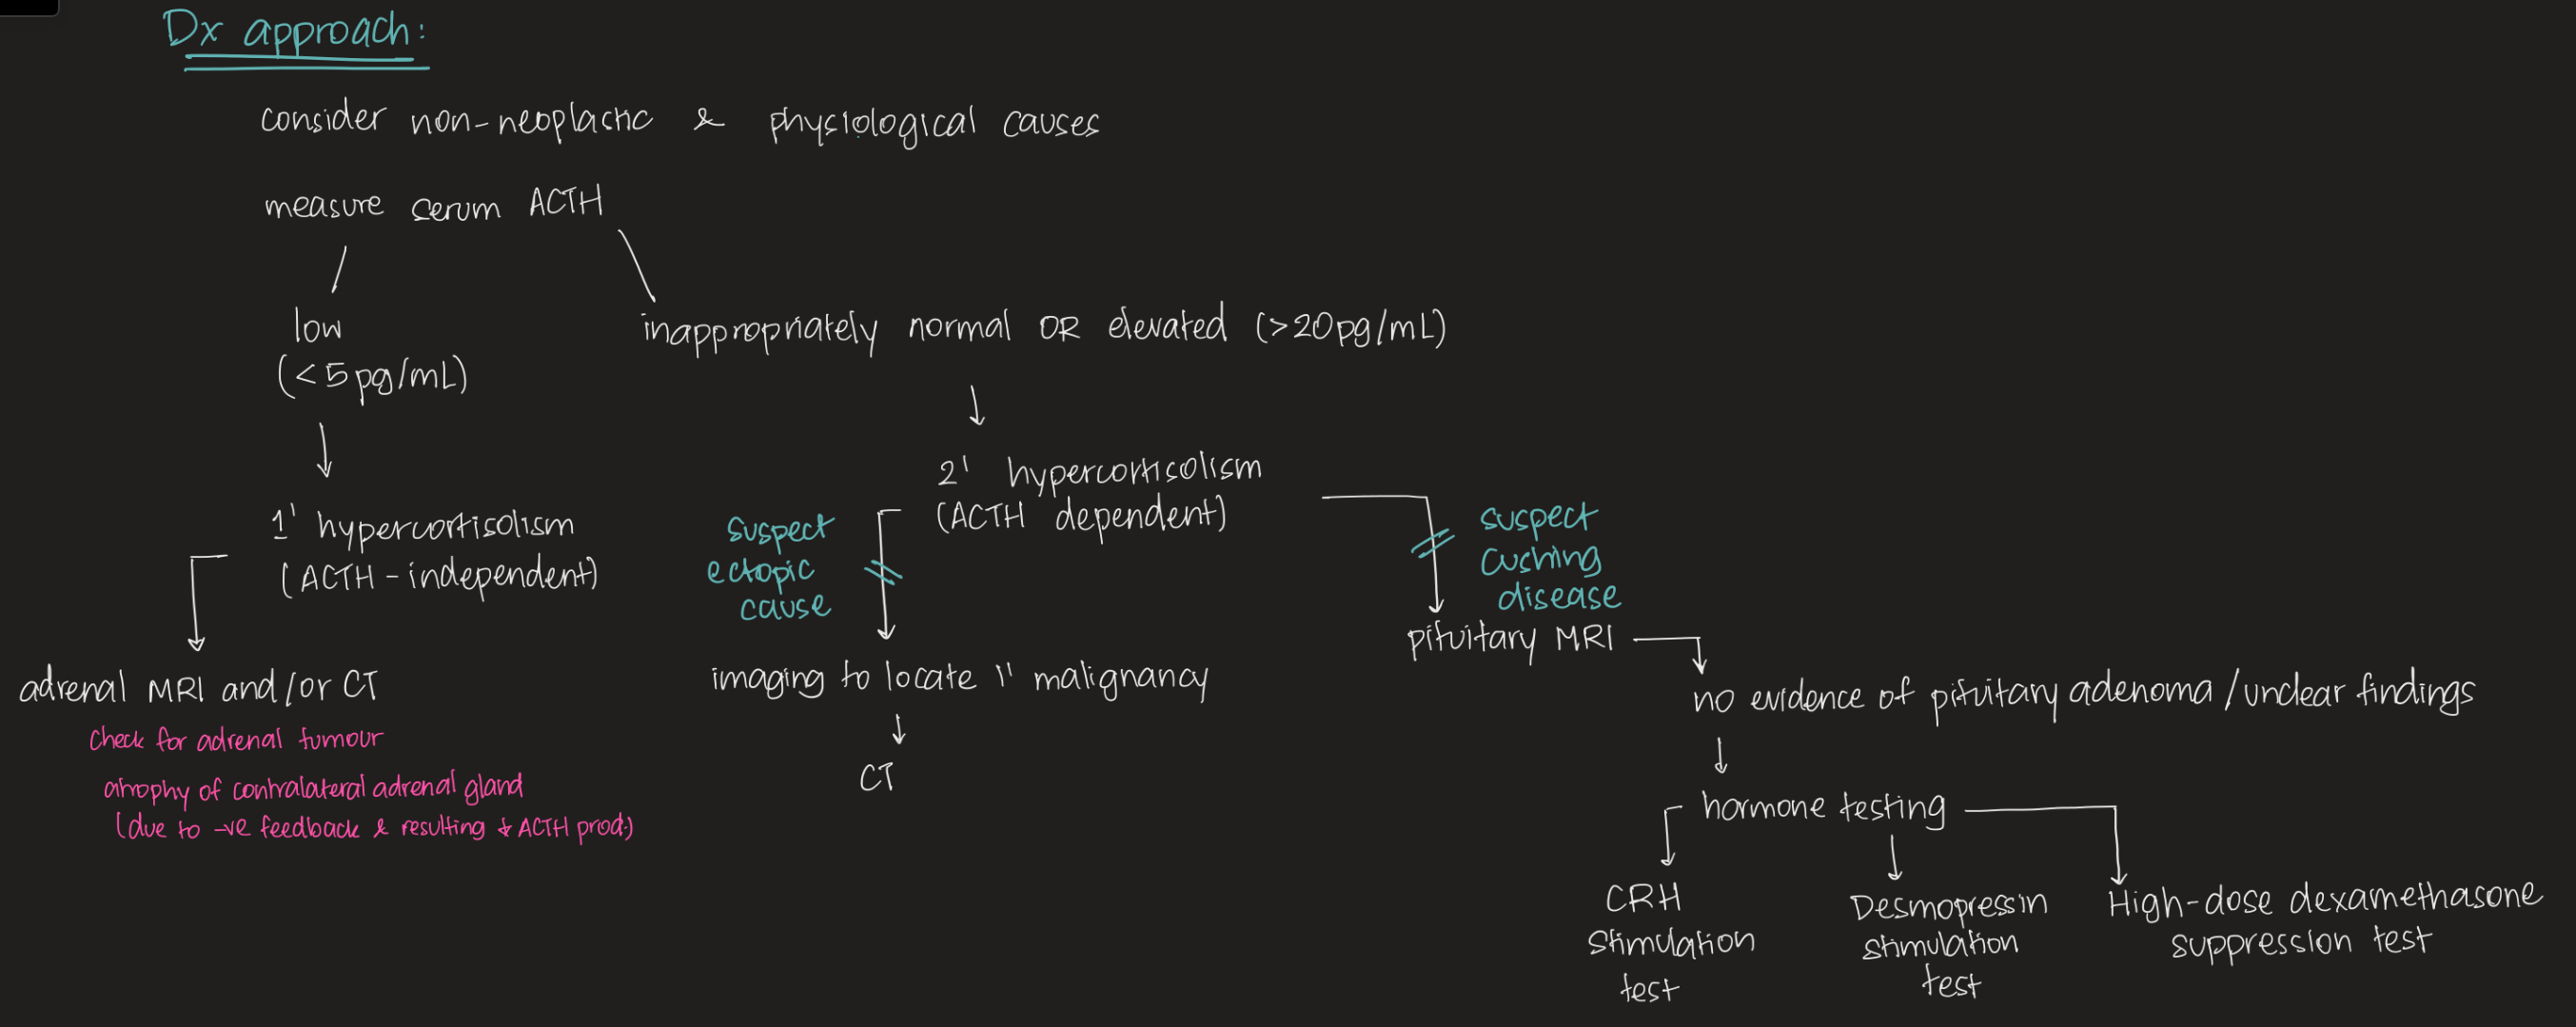 Dx approach:
consider non-neoplastic & physiological causes
measure serum ACTH
low
(<5pg/mL)
inappropriately normal OR elevated (>20pg/mL)
1' hypercortisolism
(ACTH-independent)
adrenal MRI and/or CT
check for adrenal tumour
atrophy of contralateral adrenal gland
(due to -ve feedback & resulting ↓ ACTH prod.)
2' hypercortisolism
(ACTH dependent)
suspect
ectopic
cause
imaging to locate 1' malignancy
CT
suspect
cushing
disease
pituitary MRI
no evidence of pituitary adenoma/unclear findings
hormone testing
CRH
stimulation
test
Desmopressin
stimulation
test
High-dose dexamethasone
suppression test